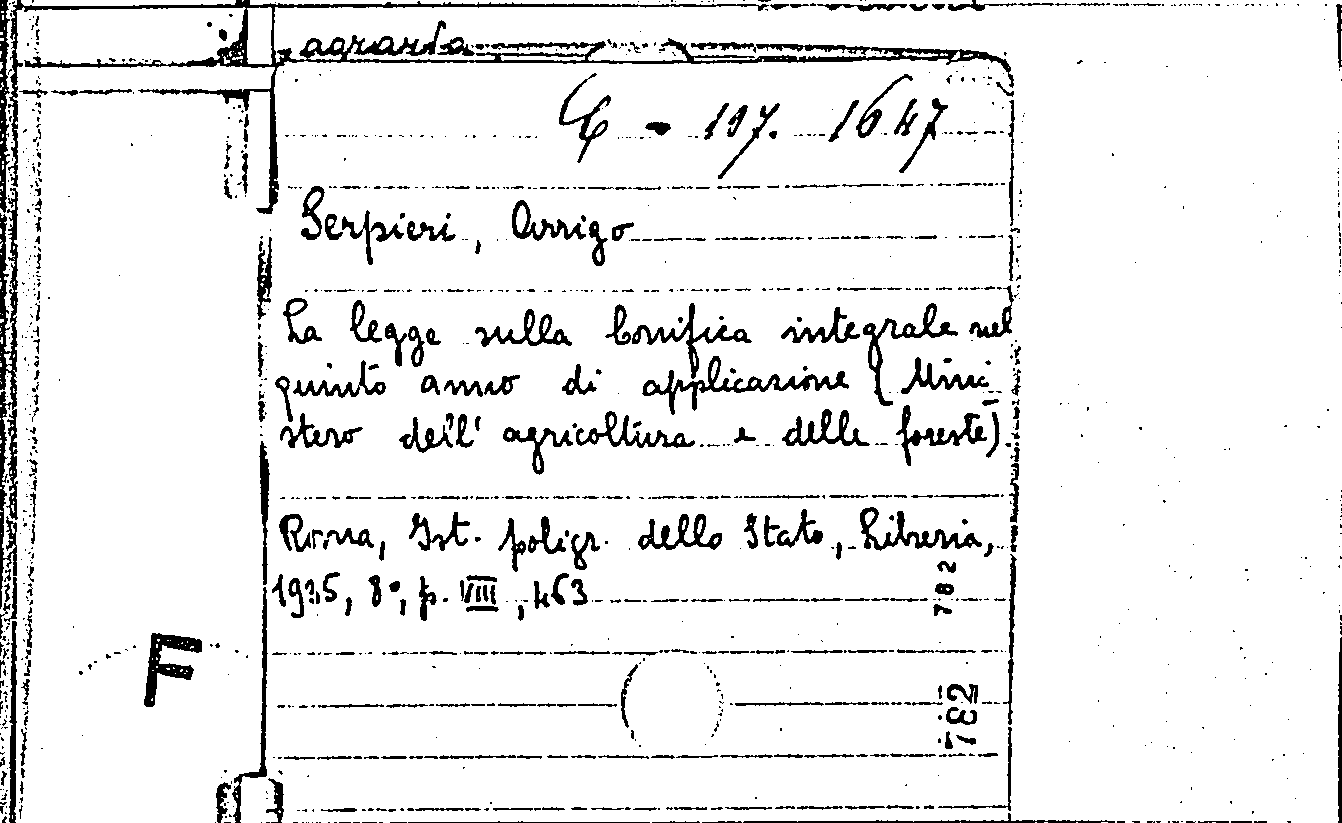 agraria
C - 197. 1647
Serpieri, Arrigo
La legge sulla bonifica integrale nel
quinto anno di applicazione (Mini
stero dell' agricoltura e delle foreste).
Roma, Ist. poligr. dello Stato, Libreria,
1935, 8°, p. VIII, 463
782
782
F